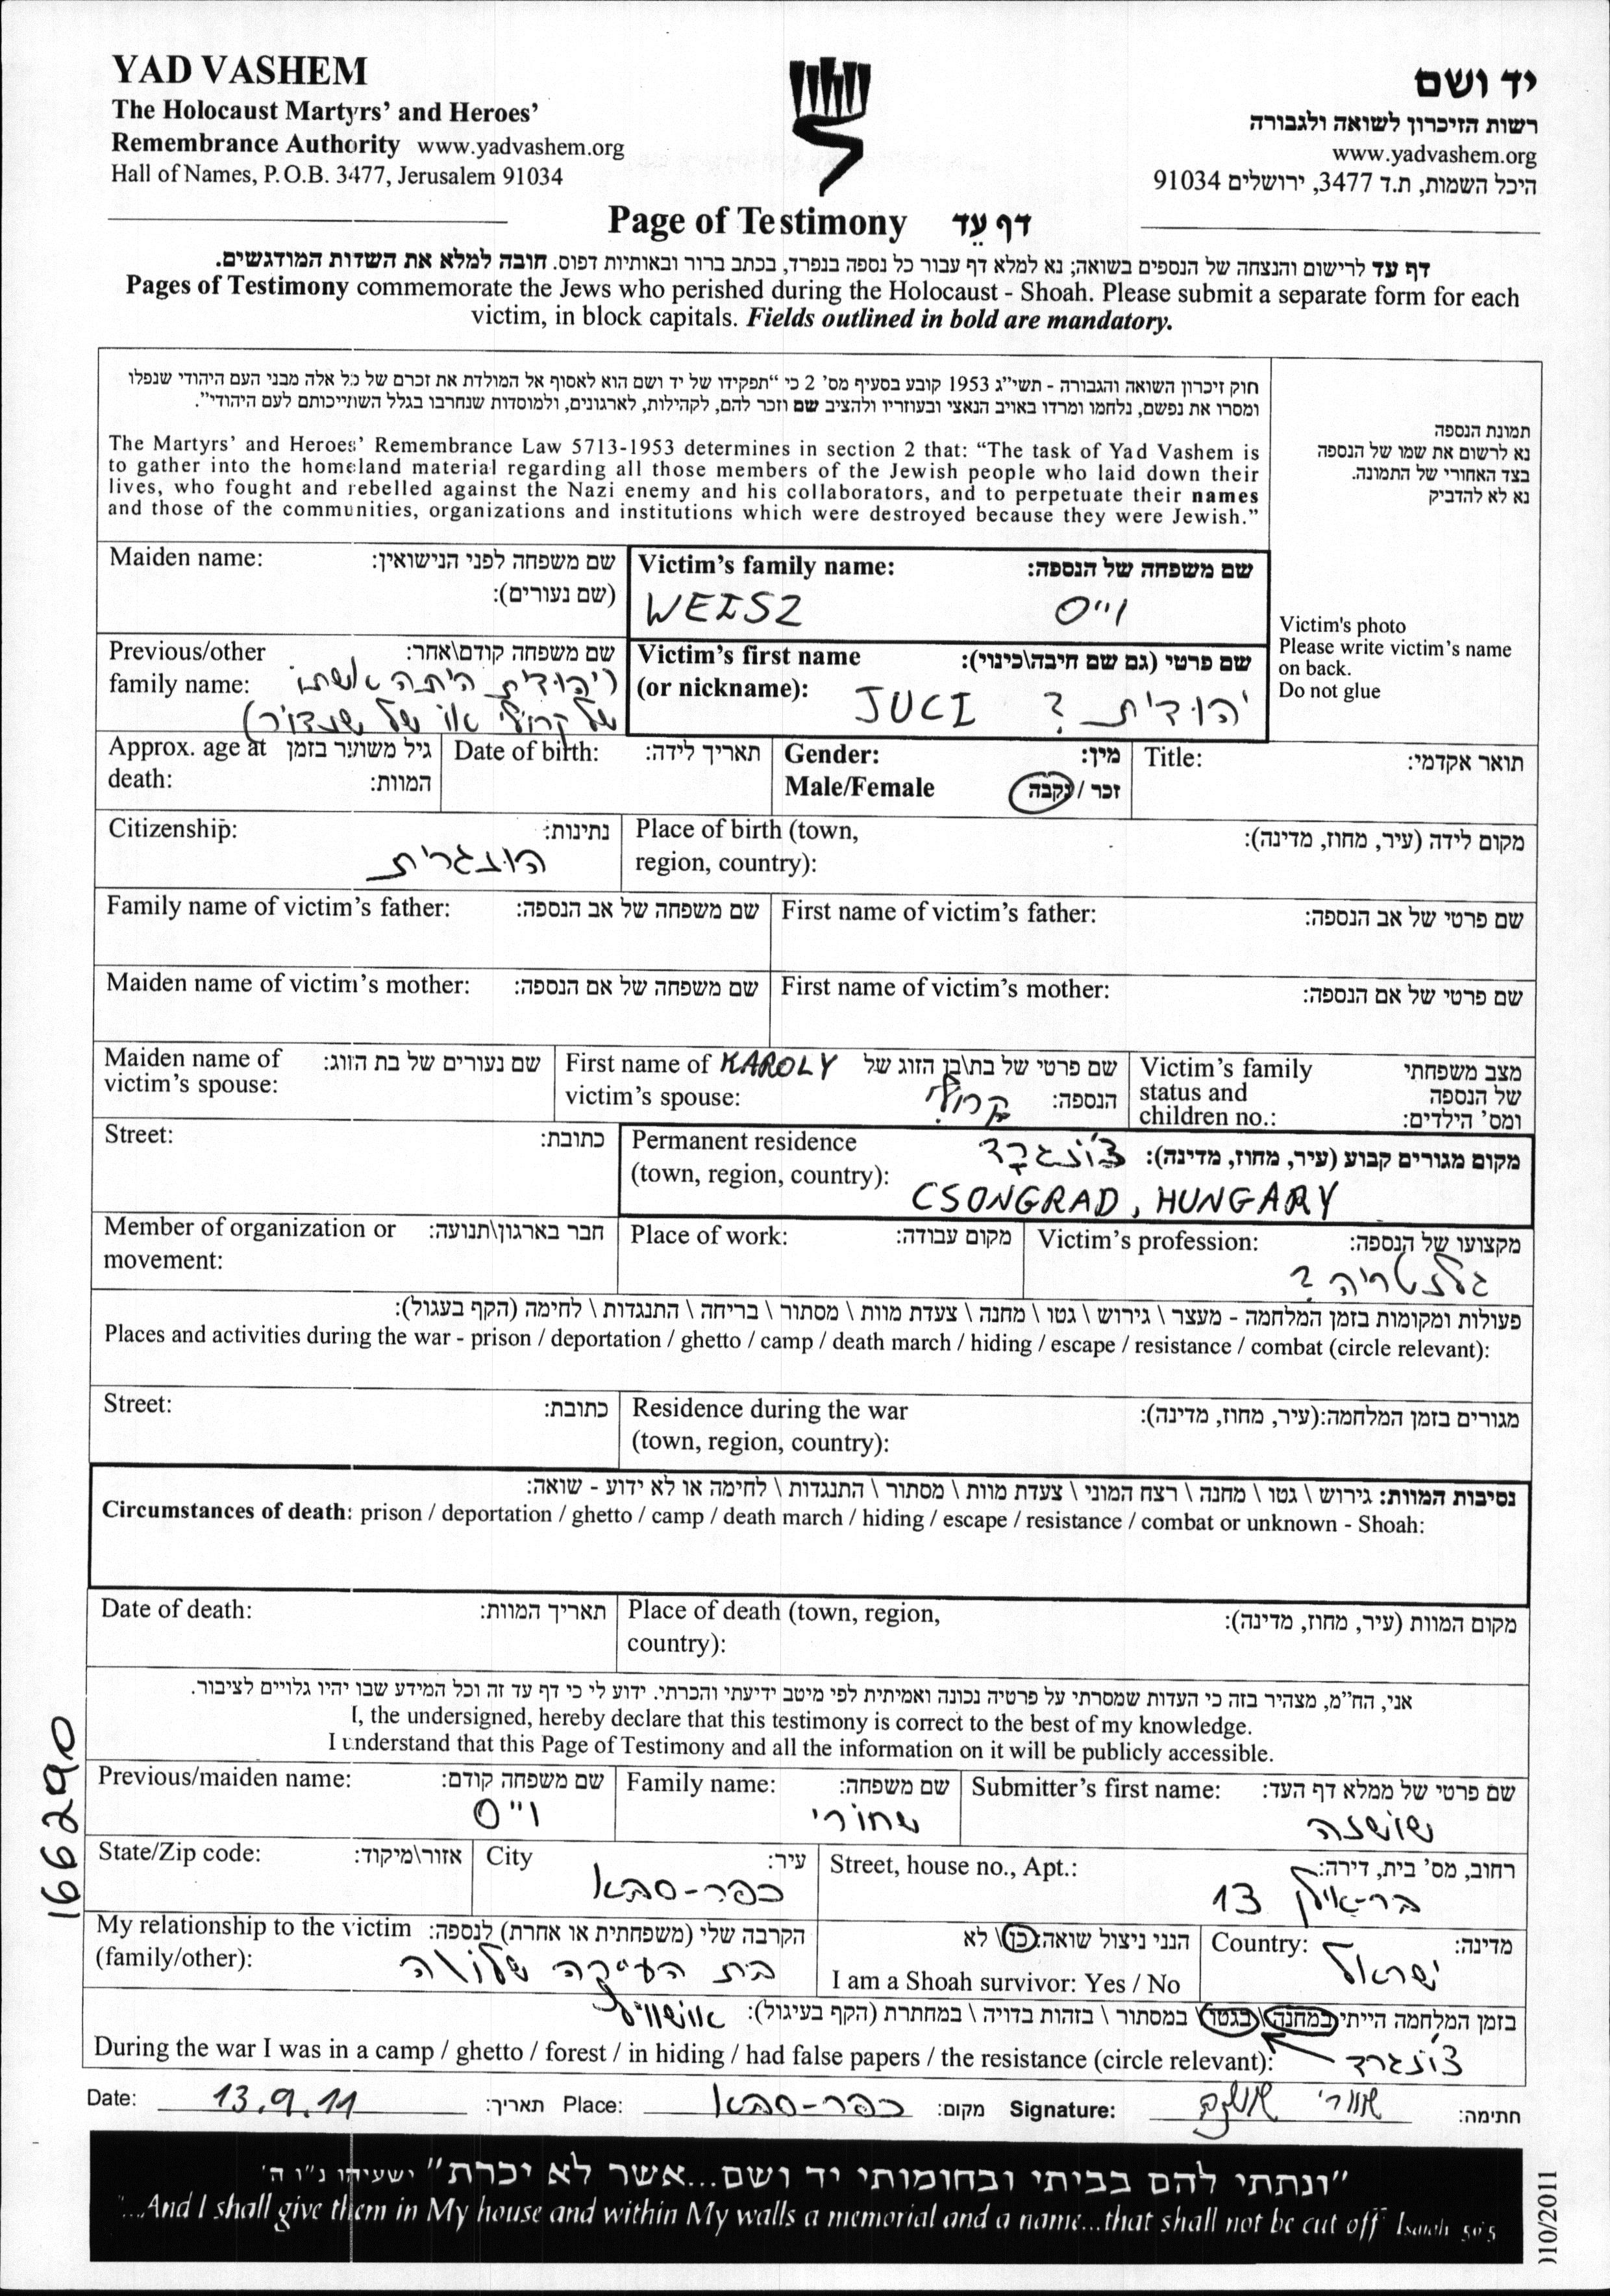 YAD VASHEM
The Holocaust Martyrs’ and Heroes’
Remembrance Authority www.yadvashem.org
Hall of Names, P.O.B. 3477, Jerusalem 91034
יד ושם
רשות הזיכרון לשואה ולגבורה
www.yadvashem.org
היכל השמות, ת.ד 3477, ירושלים 91034
Page of Testimony דף עֵד
דף עד לרישום והנצחה של הנספים בשואה; נא למלא דף עבור כל נספה בנפרד, בכתב ברור ובאותיות דפוס. חובה למלא את השדות המודגשים.
Pages of Testimony commemorate the Jews who perished during the Holocaust - Shoah. Please submit a separate form for each
victim, in block capitals. Fields outlined in bold are mandatory.
חוק זיכרון השואה והגבורה - תשי״ג 1953 קובע בסעיף מס׳ 2 כי “תפקידו של יד ושם הוא לאסוף אל המולדת את זכרם של כל אלה מבני העם היהודי שנפלו
ומסרו את נפשם, נלחמו ומרדו באויב הנאצי ובעוזריו ולהציב שם וזכר להם, לקהילות, לארגונים, ולמוסדות שנחרבו בגלל השתייכותם לעם היהודי”.
The Martyrs’ and Heroes’ Remembrance Law 5713-1953 determines in section 2 that: “The task of Yad Vashem is
to gather into the homeland material regarding all those members of the Jewish people who laid down their
lives, who fought and rebelled against the Nazi enemy and his collaborators, and to perpetuate their names
and those of the communities, organizations and institutions which were destroyed because they were Jewish.”
תמונת הנספה
נא לרשום את שמו של הנספה
בצד האחורי של התמונה.
נא לא להדביק
Victim's photo
Please write victim’s name
on back.
Do not glue
Maiden name: שם משפחה לפני הנישואין:
(שם נעורים):
Victim’s family name: שם משפחה של הנספה:
WEISZ וייס
Previous/other שם משפחה קודם\אחר:
family name: (יהודית היתה אשתו
של קרולי או של שנדור)
Victim’s first name שם פרטי (גם שם חיבה\כינוי):
(or nickname): JUCI יהודית ?
Approx. age at גיל משוער בזמן
death: המוות:
Date of birth: תאריך לידה:
Gender: מין:
Male/Female זכר / נקבה
Title: תואר אקדמי:
Citizenship: נתינות:
הונגרית
Place of birth (town, מקום לידה (עיר, מחוז, מדינה):
region, country):
Family name of victim’s father: שם משפחה של אב הנספה:
First name of victim’s father: שם פרטי של אב הנספה:
Maiden name of victim’s mother: שם משפחה של אם הנספה:
First name of victim’s mother: שם פרטי של אם הנספה:
Maiden name of שם נעורים של בת הזוג:
victim’s spouse:
First name of KAROLY שם פרטי של בת\בן הזוג של
victim’s spouse: קרולי הנספה:
Victim’s family מצב משפחתי
status and של הנספה
children no.: ומס׳ הילדים:
Street: כתובת:
Permanent residence מקום מגורים קבוע (עיר, מחוז, מדינה): צ'ונגרד
(town, region, country): CSONGRAD, HUNGARY
Member of organization or חבר בארגון\תנועה:
movement:
Place of work: מקום עבודה:
Victim’s profession: מקצועו של הנספה:
גלנטריה ?
פעולות ומקומות בזמן המלחמה - מעצר \ גירוש \ גטו \ מחנה \ צעדת מוות \ מסתור \ בריחה \ התנגדות \ לחימה (הקף בעגול):
Places and activities during the war - prison / deportation / ghetto / camp / death march / hiding / escape / resistance / combat (circle relevant):
Street: כתובת:
Residence during the war מגורים בזמן המלחמה:(עיר, מחוז, מדינה):
(town, region, country):
נסיבות המוות: גירוש \ גטו \ מחנה \ רצח המוני \ צעדת מוות \ מסתור \ התנגדות \ לחימה או לא ידוע - שואה:
Circumstances of death: prison / deportation / ghetto / camp / death march / hiding / escape / resistance / combat or unknown - Shoah:
Date of death: תאריך המוות:
Place of death (town, region, מקום המוות (עיר, מחוז, מדינה):
country):
אני, הח״מ, מצהיר בזה כי העדות שמסרתי על פרטיה נכונה ואמיתית לפי מיטב ידיעתי והכרתי. ידוע לי כי דף עד זה וכל המידע שבו יהיו גלויים לציבור.
I, the undersigned, hereby declare that this testimony is correct to the best of my knowledge.
I understand that this Page of Testimony and all the information on it will be publicly accessible.
Previous/maiden name: שם משפחה קודם:
וייס
Family name: שם משפחה:
שחורי
Submitter’s first name: שם פרטי של ממלא דף העד:
שושנה
State/Zip code: אזור\מיקוד:
City עיר:
כפר-סבא
Street, house no., Apt.: רחוב, מס׳ בית, דירה:
בר-אילן 13
My relationship to the victim הקרבה שלי (משפחתית או אחרת) לנספה:
(family/other): בת העיירה שלו\ה
הנני ניצול שואה: כן \ לא
I am a Shoah survivor: Yes / No
Country: מדינה:
ישראל
בזמן המלחמה הייתי במחנה \ בגטו \ במסתור \ בזהות בדויה \ במחתרת (הקף בעיגול): אושוויץ
During the war I was in a camp / ghetto / forest / in hiding / had false papers / the resistance (circle relevant): צ'ונגרד
Date: 13.9.11 תאריך: Place: כפר-סבא מקום: Signature: שחורי שושנה חתימה:
״ונתתי להם בביתי ובחומותי יד ושם...אשר לא יכרת״ ישעיהו נ״ו ה׳
"...And I shall give them in My house and within My walls a memorial and a name...that shall not be cut off" Isaiah 56:5
166290